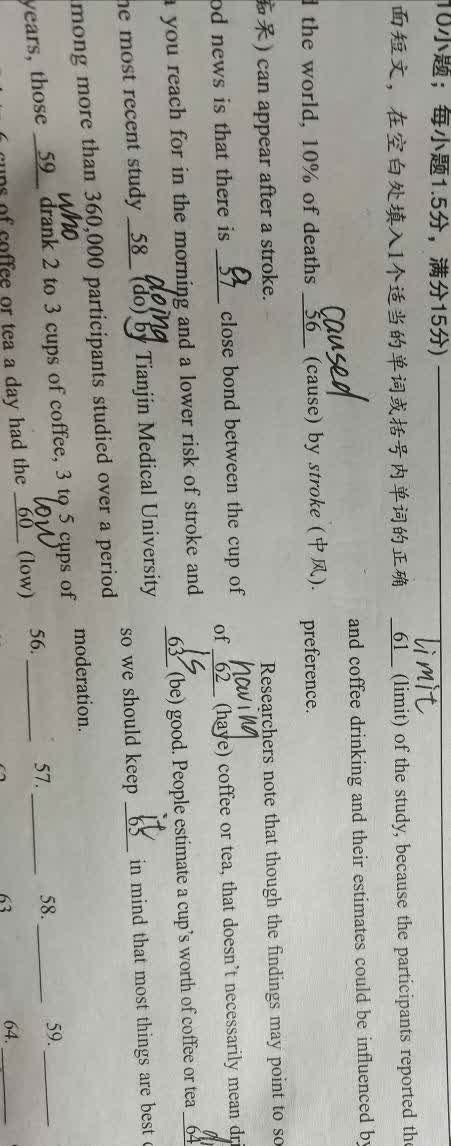 10小题；每小题1.5分，满分15分)
面短文，在空白处填入1个适当的单词或括号内单词的正确
the world, 10% of deaths 56 (cause) by stroke (中风).
caused
can appear after a stroke.
od news is that there is 57 close bond between the cup of
a
you reach for in the morning and a lower risk of stroke and
he most recent study 58 (do) by Tianjin Medical University
doing
mong more than 360,000 participants studied over a period
years, those 59 drank 2 to 3 cups of coffee, 3 to 5 cups of
who
cups of coffee or tea a day had the 60 (low)
low
61 (limit) of the study, because the participants reported the
limit
and coffee drinking and their estimates could be influenced b
preference.
Researchers note that though the findings may point to so
of 62 (have) coffee or tea, that doesn't necessarily mean dri
having
63 (be) good. People estimate a cup's worth of coffee or tea 64
is
so we should keep 65 in mind that most things are best
it
moderation.
56. 57. 58. 59.
63 64.